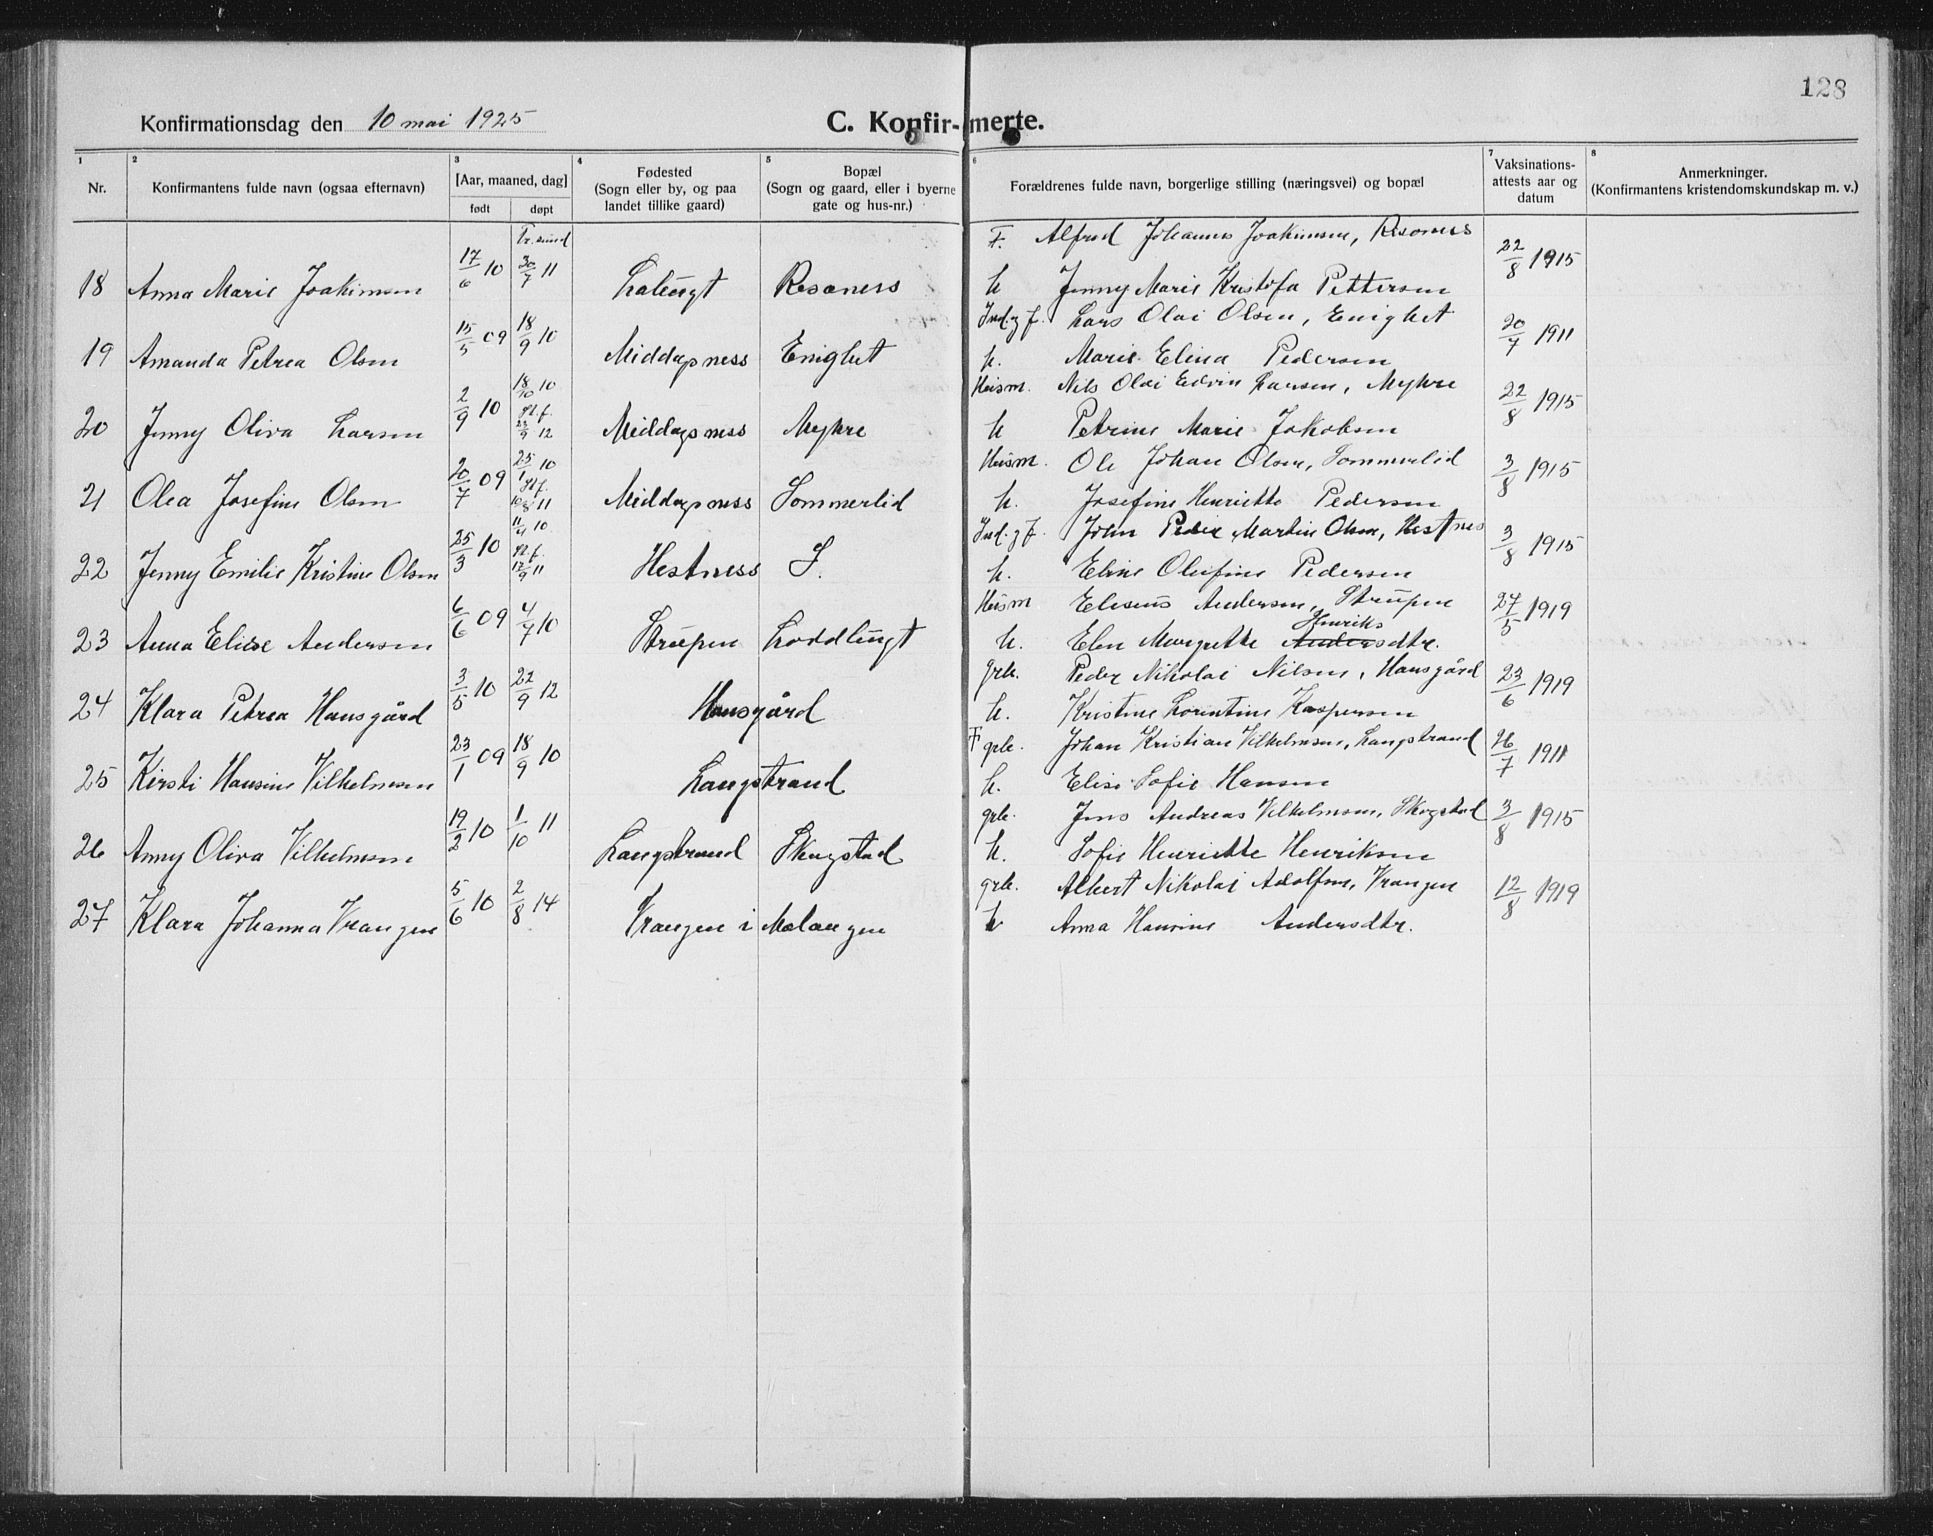 128
Konfirmationsdag den 10 mai 1925
C. Konfir-merte.
1 2 3 4 5 6 7 8
Nr. Konfirmantens fulde navn (ogsaa efternavn) [Aar, maaned, dag] født døpt Fødested (Sogn eller by, og paa landet tillike gaard) Bopæl (Sogn og gaard, eller i byerne gate og hus-nr.) Forældrenes fulde navn, borgerlige stilling (næringsvei) og bopæl Vaksinations-attests aar og datum Anmerkninger. (Konfirmantens kristendomskundskap m. v.)
18 Anna Marie Joakimsen 17/6 10 Tr.sund 30/7 11 Resoness F. Alfred Johannes Joakimsen, Resoness 22/8 1915
h Jenny Marie Kristofa Pettersen
19 Amanda Petrea Olsen 15/5 09 18/9 10 Middagsness Enighet Ind. g f. Lars Olai Olsen, Enighet 20/7 1911
h. Marie Elina Pedersen
20 Jenny Oliva Larsen 2/9 10 18/10 10 st.f. 22/9 12 Middagsness Myhre Husm. Nils Olai Edvin Larsen, Myhre 22/8 1915
h Petrine Marie Jakobsen
21 Olea Josefine Olsen 20/7 09 25/1 10 st.f. 10/8 11 Middagsness Sommerlid Husm. Ole Johan Olsen, Sommerlid 3/8 1915
h. Josefine Henriette Pedersen
22 Jenny Emilie Kristine Olsen 25/3 10 11/4 10 st.f. 17/9 11 Hestness S. Ind. g f. John Peder Martin Olsen, Hestnes 3/8 1915
h. Eline Olufine Pedersen
23 Anna Elise Andersen 6/6 09 4/7 10 Strupen Loddbugt Husm Elisæus Andersen, Strupen 27/5 1919
h. Elen Margrethe Andersdtr. Henriks
24 Klara Petrea Hansgård 3/5 10 22/9 12 Hansgård grb. Peder Nikolai Nilsen, Hansgård 23/6 1919
h. Kristine Lorentine Kaspersen
25 Kirsti Hansine Vilhelmsen 23/1 09 18/9 10 Langstrand F grb. Johan Kristian Vilhelmsen, Langstrand 26/7 1911
h. Elise Sofie Hansen
26 Anny Oliva Vilhelmsen 19/2 10 1/10 11 Langstrand Skogstad grb. Jens Andreas Vilhelmsen, Skogstad 3/8 1915
h. Sofie Henriette Henriksen
27 Klara Johanna Vrangen 5/6 10 2/8 14 Vrangen i Malangen grb. Albert Nikolai Adolfsen, Vrangen 12/8 1919
h Anna Hansine Andersdtr.